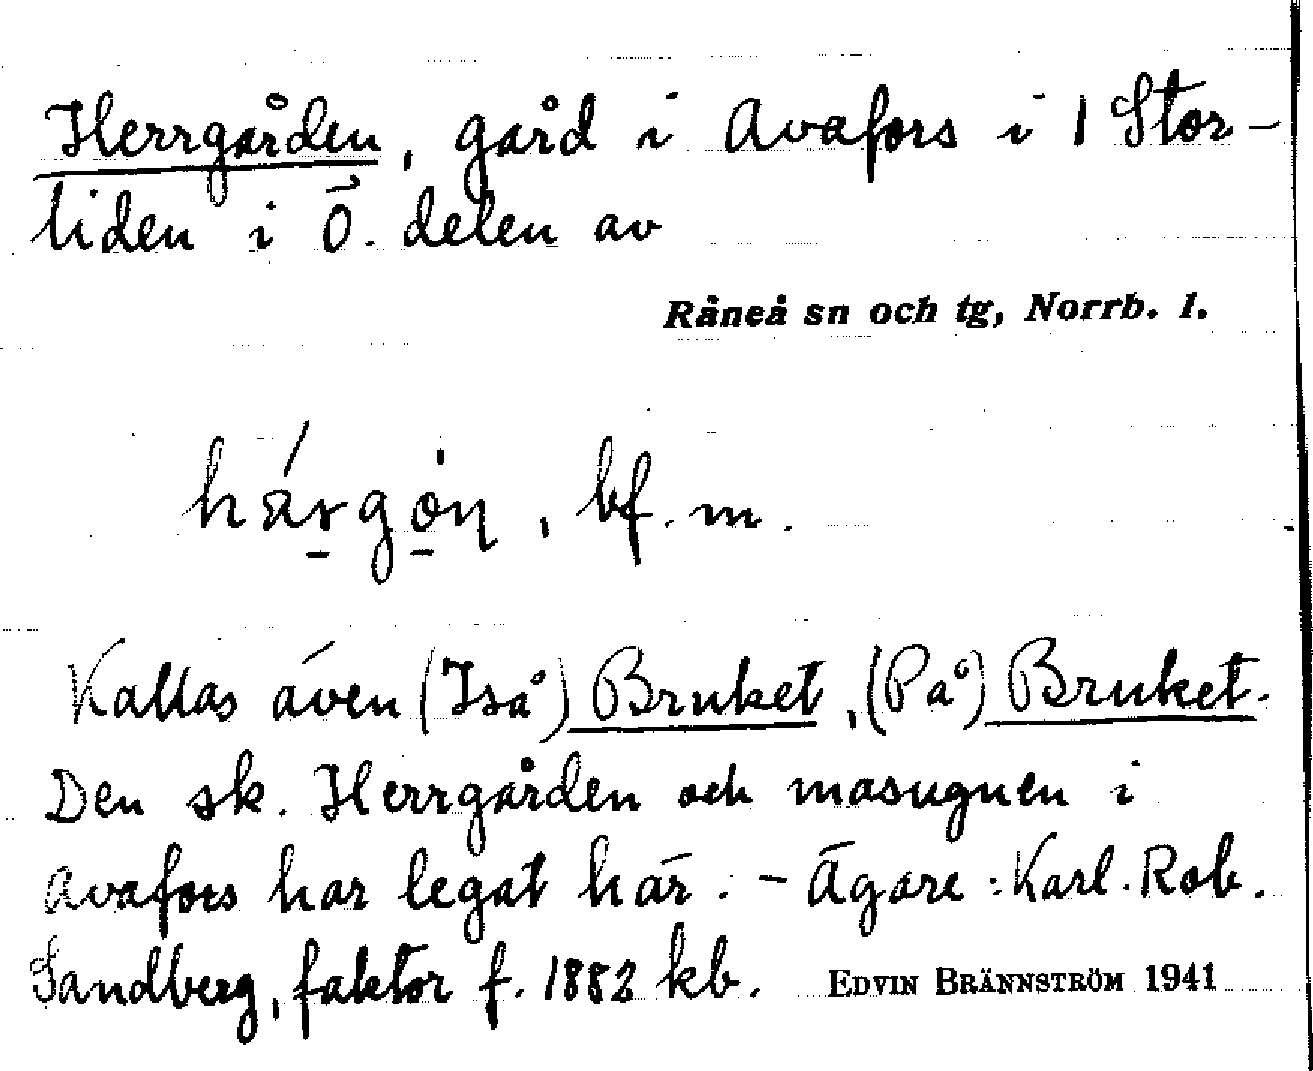 Herrgården, gård i Avafors i 1 Stor-
liden i Ö. delen av
Råneå sn och tg, Norrb. l.
, bf. m.
Kallas även (Iså) Bruket, (På) Bruket.
Den sk. Herrgården och masugnen i
Avafors har legat här. - Ägare: Karl. Rob.
Sandberg, faktor f. 1882 kb. EDVIN BRÄNNSTRÖM 1941